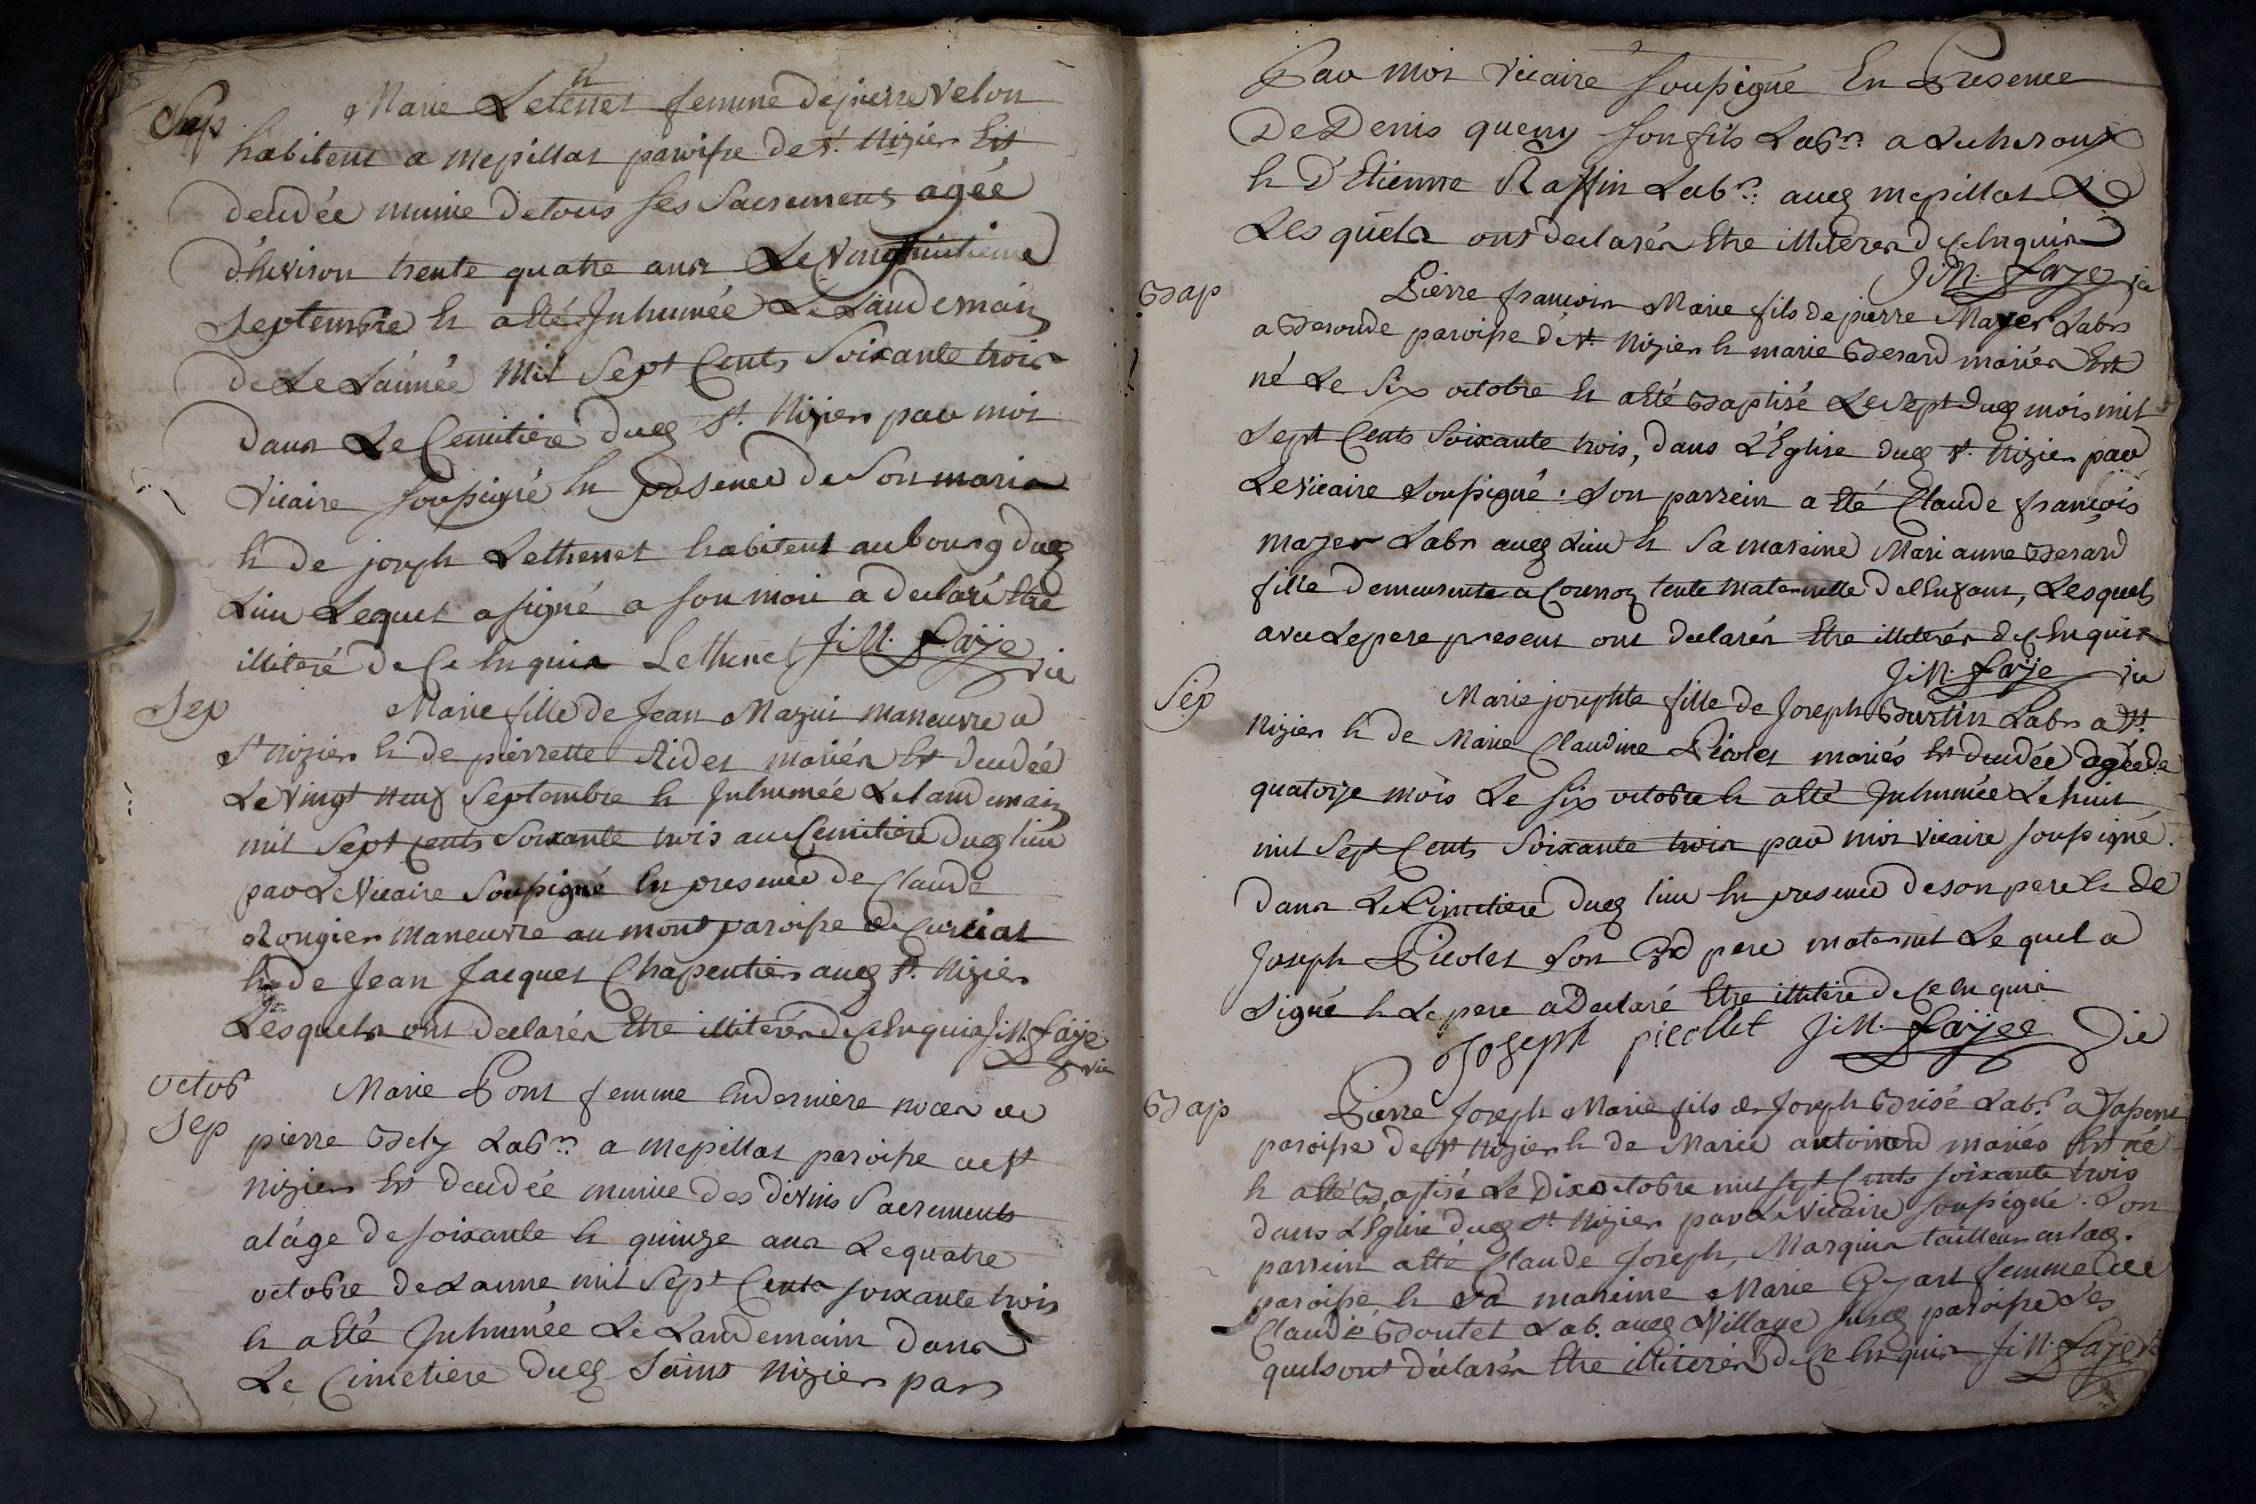 Sep
Marie Letenet femme de pierre Velon
habitent a mepillat paroisse de St. Nizier Est
decedée munie de tous ses Sacrements agée
d'Environ trente quatre ans Le Vingthuitieme
Septembre Et a Eté Inhumée Le Landemain
de L'année Mil Sept Cents Soixante trois
dans Le Cemitiere dud St. Nizier par moi
Vicaire soussigné En presence de Son maria
Et de joseph Lethenet habitent au bourg dud
Lieu Lequel a signé a son mari a declaré Etre
illiteré de Ce Enquis Lethenet J:M. Faÿe vic
Sep
Marie fille de Jean Mazuir maneuvre a
St Nizier Et de pierrette Ridet mariés Est decedée
Le Vingt neuf Septembre Et Inhumée Le landemain
mil Sept cents Soixante trois au Cemitiere dud lieu
par Le Vicaire Soussigné En presence de Claude
Rongier maneuvre au mont paroisse de Curciat
Et de Jean Jacques Chapentier aud St. Nizier
Lesquels ont declarés Etre illiterés de Ce Enquis J:M. Faÿe
vic
octob
Sep
Marie Pont femme En derniere noces de
pierre Bely Lab.r a mepillat paroisse de St
Nizier Est decedée munie des divins Sacrements
a l'âge de soixante Et quinze ans Le quatre
octobre de Lanne mil Sept Cents soixante trois
Et a Eté Inhumée Le Landemain dans
Le Cimetiere dud Saint Nizier par
Par moi Vicaire soussigné En Presence
De Denis queny son fils Lab.r a Lecheroux
Et d'Etienne Raffin Lab.r aud mepillat
Lesquels ont declarés Etre illiteres de Ce Enquis
J:M. Faye vic
Bap
Pierre francois Marie fils de pierre Mayer Labr
a paroisse de St. Nizier Et marie Berard mariés Est
né Le Six octobre Et a Eté Baptisé Le Sept dud mois mil
Sept Cents Soixante trois, dans L'Eglise dud St. Nizier par
Le Vicaire Soussigné. Son parrein a Eté Claude francois
mayer Labr aud Lieu Et Sa mareine Mari anne Berard
fille demeurente a Cournoz tente maternelle de lEnfant, Lesquels
avec Le pere present ont declarés Etre illiterés de Ce Enquis
J:M. Faÿe vic
Sep
Marie josephte fille de Joseph Burtin Labr a St.
Nizier Et de Marie Claudine Picolet mariés Est decedée agée de
quatorze mois Le Six octobre Et a Eté Inhumée Le huit
mil Sept Cents Soixante trois par moi Vicaire soussigné.
Dans Le Cimetiere dud lieu En presence de son pere Et de
Joseph Picolet Son Grd pere maternel Lequel a
Signé Et Le pere a Declaré Etre illitere de Ce Enquis
Joseph picollet J:M. Faÿee Vic
Bap
Pierre Joseph Marie fils de Joseph Brisé Lab.r a
paroisse de St Nizier Et de Marie antoinard mariés Est né
Et a Eté Baptisé Le Dix octobre mil sept Cents soixante trois
dans L'Eglise dud St. Nizier par Le Vicaire soussigné. Son
parrein a Eté Claude Joseph Marquis tailleur en lad.
paroisse, Et Sa mareine Marie Gyart femme de
Claude Boutet Lab. aud Village susd paroisse Les
quels ont déclarés Etre illiterés de Ce Enquis J:M. Faÿe vic